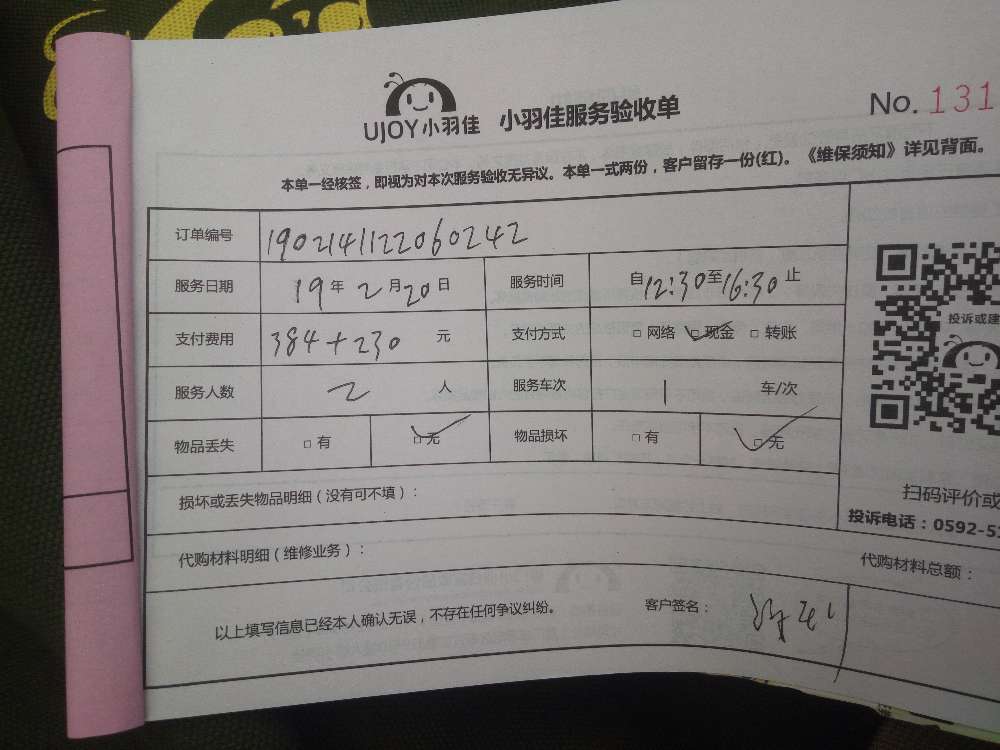 UJOY小羽佳 小羽佳服务验收单 No. 131
本单一经核签，即视为对本次服务验收无异议。本单一式两份，客户留存一份(红)。《维保须知》详见背面。
订单编号 1902141122060242
服务日期 19年2月20日 服务时间 自12:30至16:30止
支付费用 384+230 元 支付方式 □网络 ☑现金 □转账
服务人数 2 人 服务车次 1 车/次
物品丢失 □有 ☑无 物品损坏 □有 ☑无
投诉或建
损坏或丢失物品明细（没有可不填）：
扫码评价或
投诉电话：0592-5
代购材料明细（维修业务）： 代购材料总额：
以上填写信息已经本人确认无误，不存在任何争议纠纷。 客户签名：